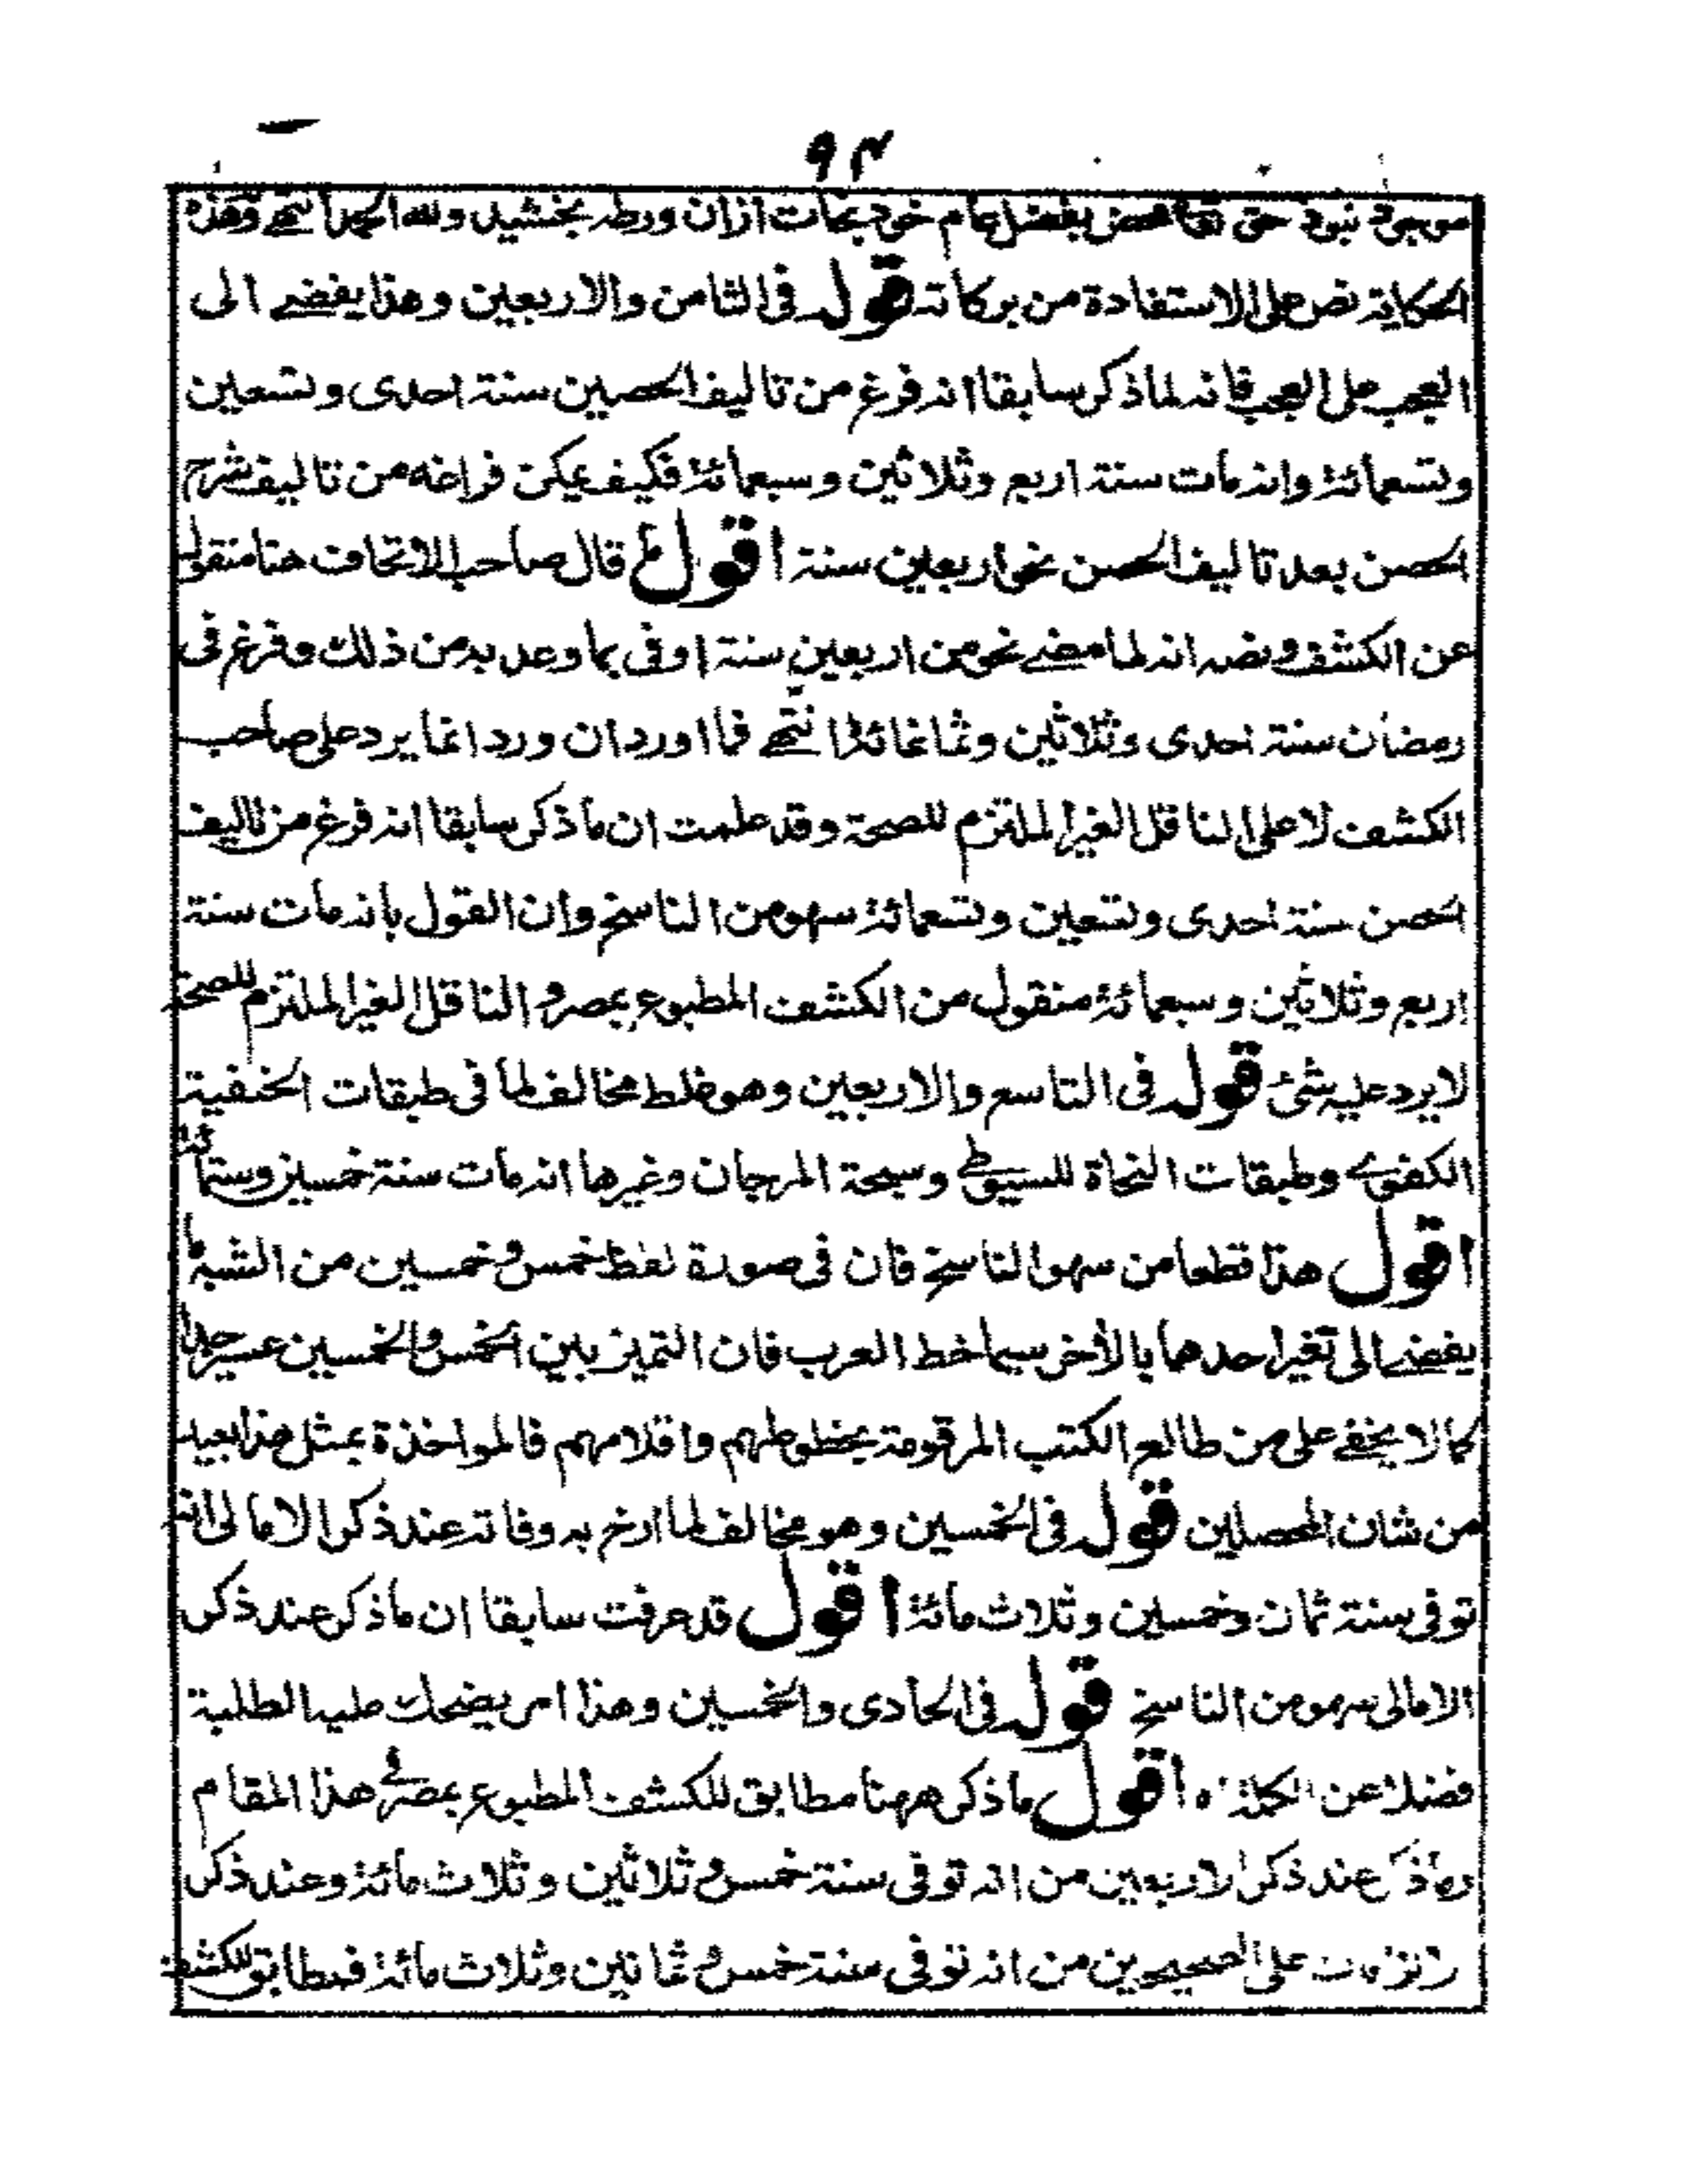 ٩٤
موجود نبود حق تعالى محض بفضل عام خود نجات ازان ورطه بخشيد ولله الحمد انتهى وهذه
الحكاية نص على الاستفادة من بركاته قوله فى الثامن والاربعين وهذا يفضى الى
العجب على العجب فانه لما ذكر سابقا انه فرغ من تاليف الحصين سنة احدى وتسعين
وتسعمائة وانه مات سنة اربع وثلاثين وسبعمائة فكيف يمكن فراغه من تاليف شرح
الحصن بعد تاليف الحصن نحو اربعين سنة اقول قال صاحب الاتحاف هنا منقولا
عن الكشف ونصه انه لما مضى نحو من اربعين سنة اوفى بما وعد به من ذلك وفرغ فى
رمضان سنة احدى وثلاثين وثمانمائة انتهى فما اورد ان ورد انما يرد على صاحب
الكشف لا على الناقل الغير الملتزم للصحة وقد علمت ان ما ذكر سابقا انه فرغ من تاليف
الحصن سنة احدى وتسعين وتسعمائة سهو من الناسخ وان القول بانه مات سنة
اربع وثلاثين وسبعمائة منقول من الكشف المطبوع بمصر و الناقل الغير الملتزم للصحة
لا يرد عليه شئ قوله فى التاسع والاربعين وهو غلط مخالف لما فى طبقات الحنفية
الكفوى وطبقات النحاة للسيوطى وسبحة المرجان وغيرها انه مات سنة خمسين وستمائة
اقول هذا قطعا من سهو الناسخ فان فى صورة لفظ خمس وخمسين من الشبه ما
يفضى الى تغير احدهما بالأخر سيما خط العرب فان التميز بين الخمس والخمسين عسير جدا
كما لا يخفى على من طالع الكتب المرقومة بخطوطهم واقلامهم فالمواخذة بمثل هذا بعيد
من شان المحصلين قوله فى الخمسين وهو مخالف لما ارخ به وفاته عند ذكر الامالى انه
توفى سنة ثمان وخمسين وثلاث مائة اقول قد عرفت سابقا ان ما ذكر عند ذكر
الامالى سهو من الناسخ قوله فى الحادى والخمسين وهذا امر يضحك عليه الطلبة
فضلا عن الكملة اه اقول ما ذكر ههنا مطابق للكشف المطبوع بمصر فى هذا المقام
وما ذكر عند ذكر الاربعين من انه توفى سنة خمس وثلاثين وثلاث مائة وعند ذكر
على الصحيحين من انه توفى سنة خمس وثمانين وثلاث مائة فمطابق للكشف